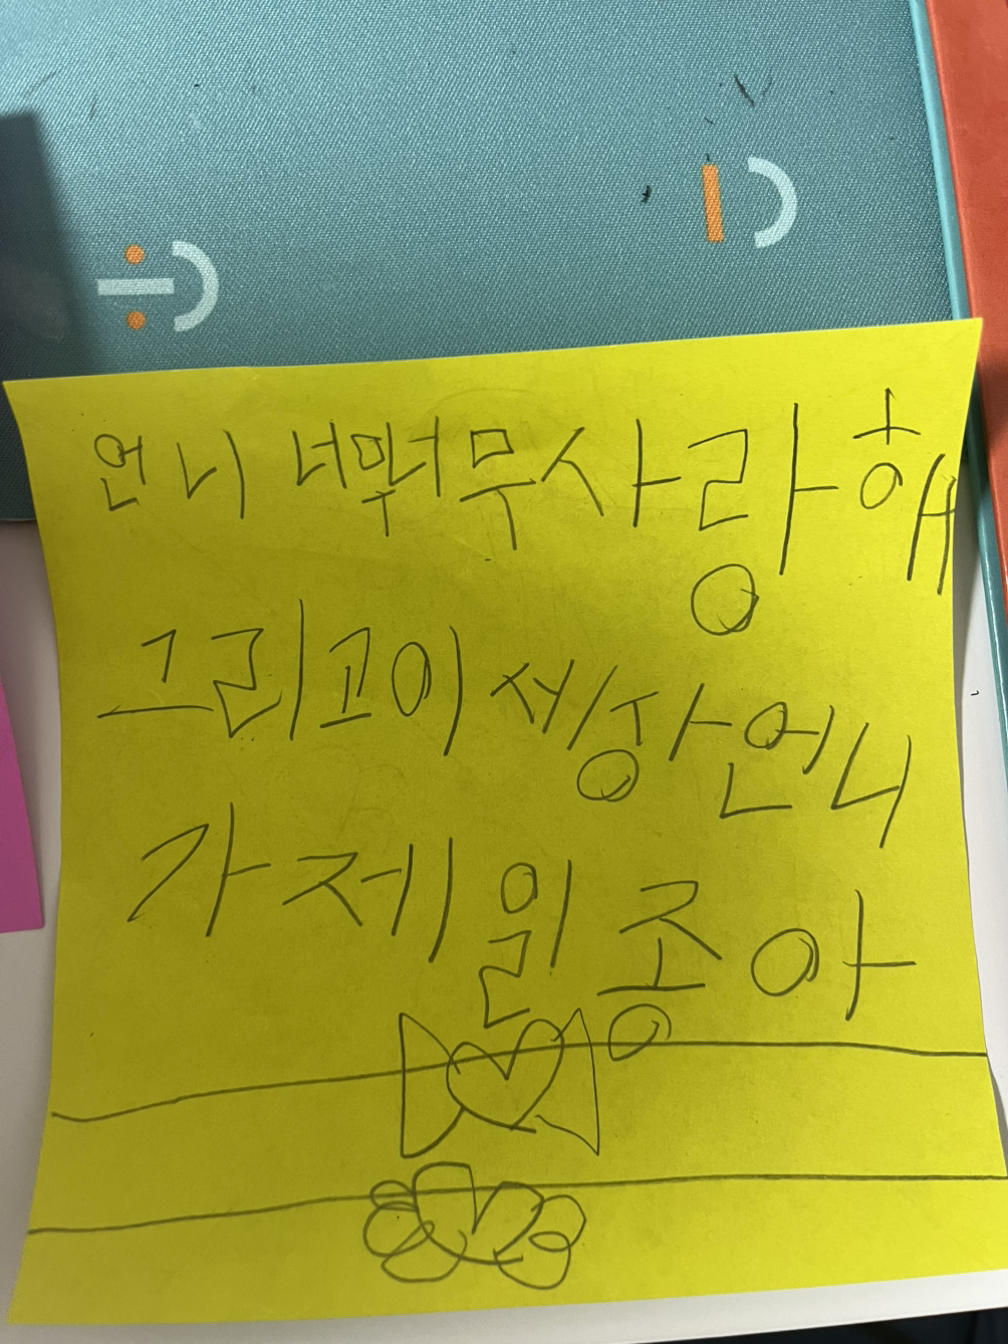 언니 너무 사랑해
그리고 이 세상 언니
가 제일 종아